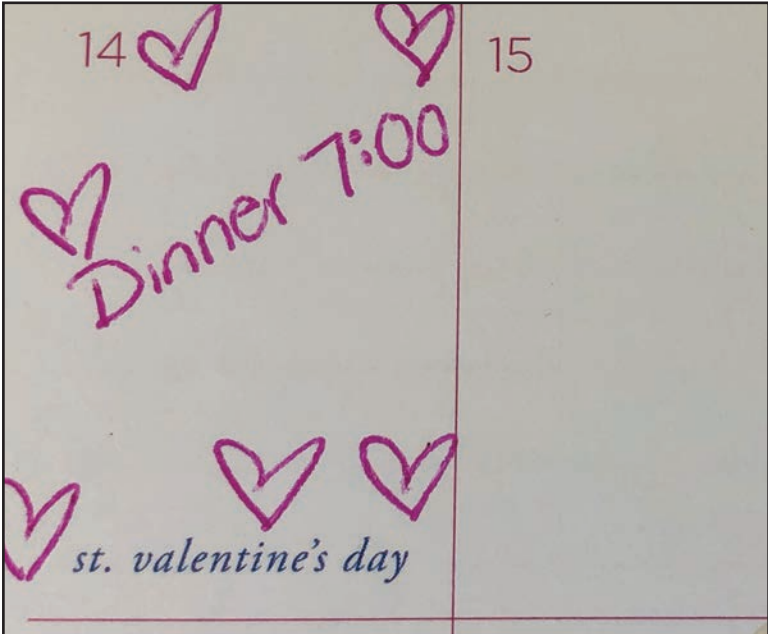 14
15
Dinner 7:00
st. valentine's day